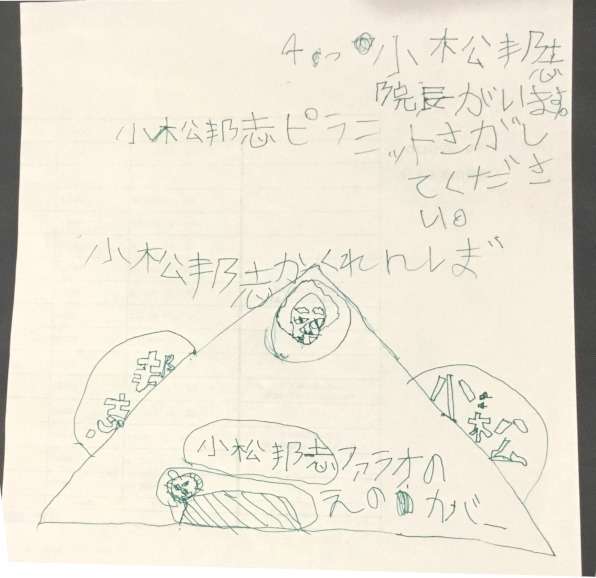 4つ小松邦志
院長がいます。
小松邦志ピラミットさがし
てくださ
い。
小松邦志かくれんしぼ
邦志
小松
小松邦志ファラオの
えのカバー